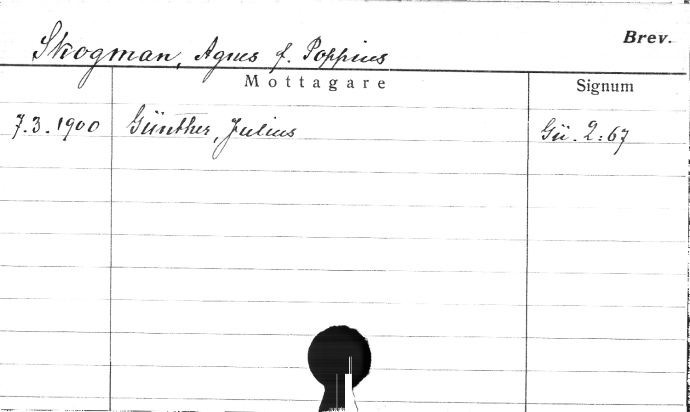 Brev.
Skogman, Agnes f. Poppius
Mottagare Signum
7.3.1900 Günther, Julius Gü. 2:67